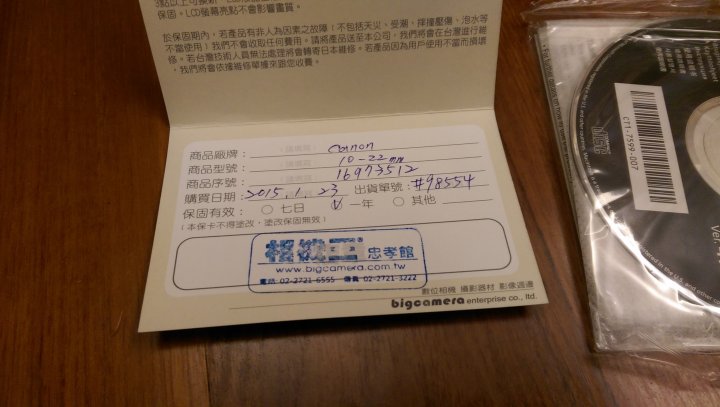 保固。LCD螢幕亮點不會影響畫質。
於保固期內，若產品有非人為因素之故障（不包括天災、受潮、摔撞壓傷、泡水等
不當使用）我們不會收取任何費用。請將產品送至本公司，我們將會在台灣進行維
修。若台灣技術人員無法處理將會轉寄日本維修。若產品因為用戶使用不當而損壞
，我們將會依據維修單據來跟您收費。
商品廠牌：Canon
商品型號：10-22mm
商品序號：16973512
購買日期：2015.1.23 出貨單號：#98554
保固有效：○七日 ○一年 ○其他
（本保卡不得塗改，塗改保固無效）
相機王 忠孝館
www.bigcamera.com.tw
電話: 02-2721-6555 傳真 02-2721-3222
數位相機 攝影器材 影像週邊
bigcamera enterprise co., ltd.
CT1-7599-007